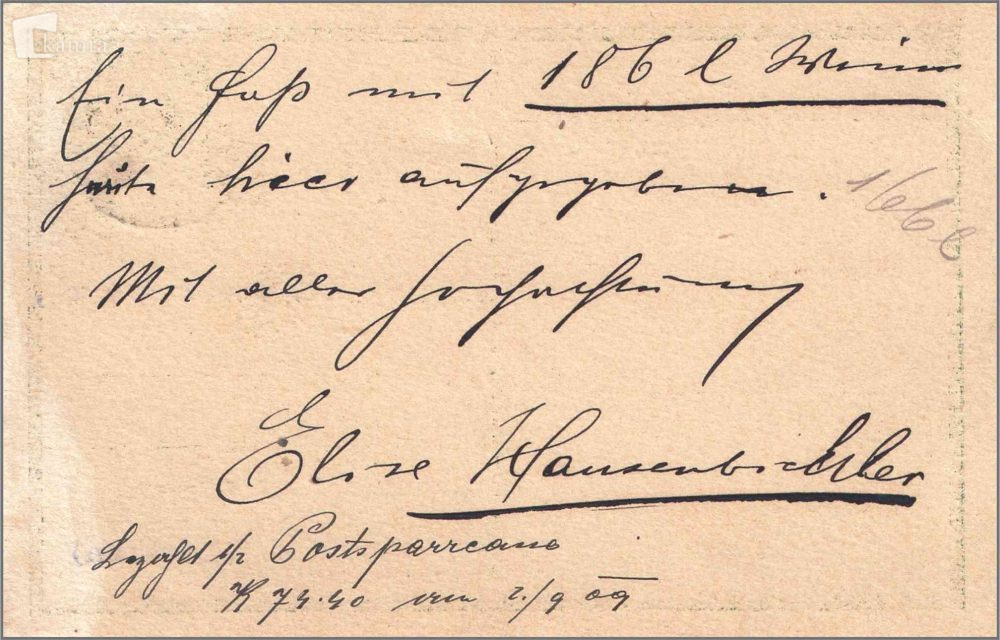 Ein Faß mit 186 l Wein
heute hier aufgegeben.
166 l
Mit aller Hochachtung
Elise Hausenbichler
Bezahlt d/ Postsparrcassa
K 74.40 am 2./9 09